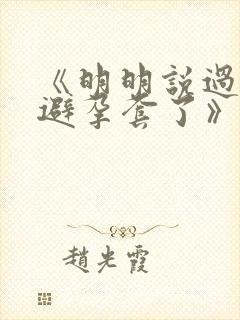 《明明說過
避孕套了》
趙光霞